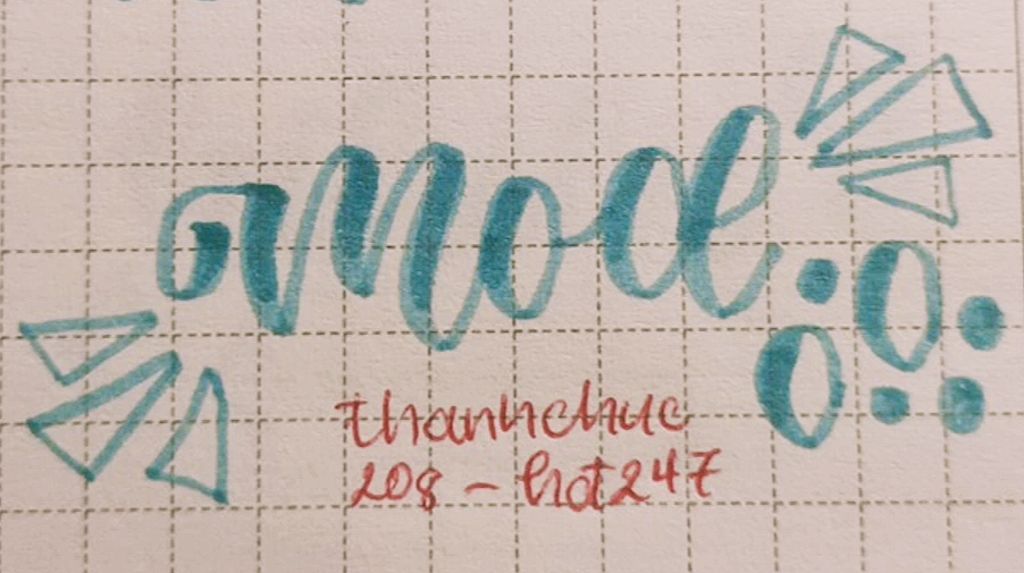 mod
thanhchuc
208 - hot247